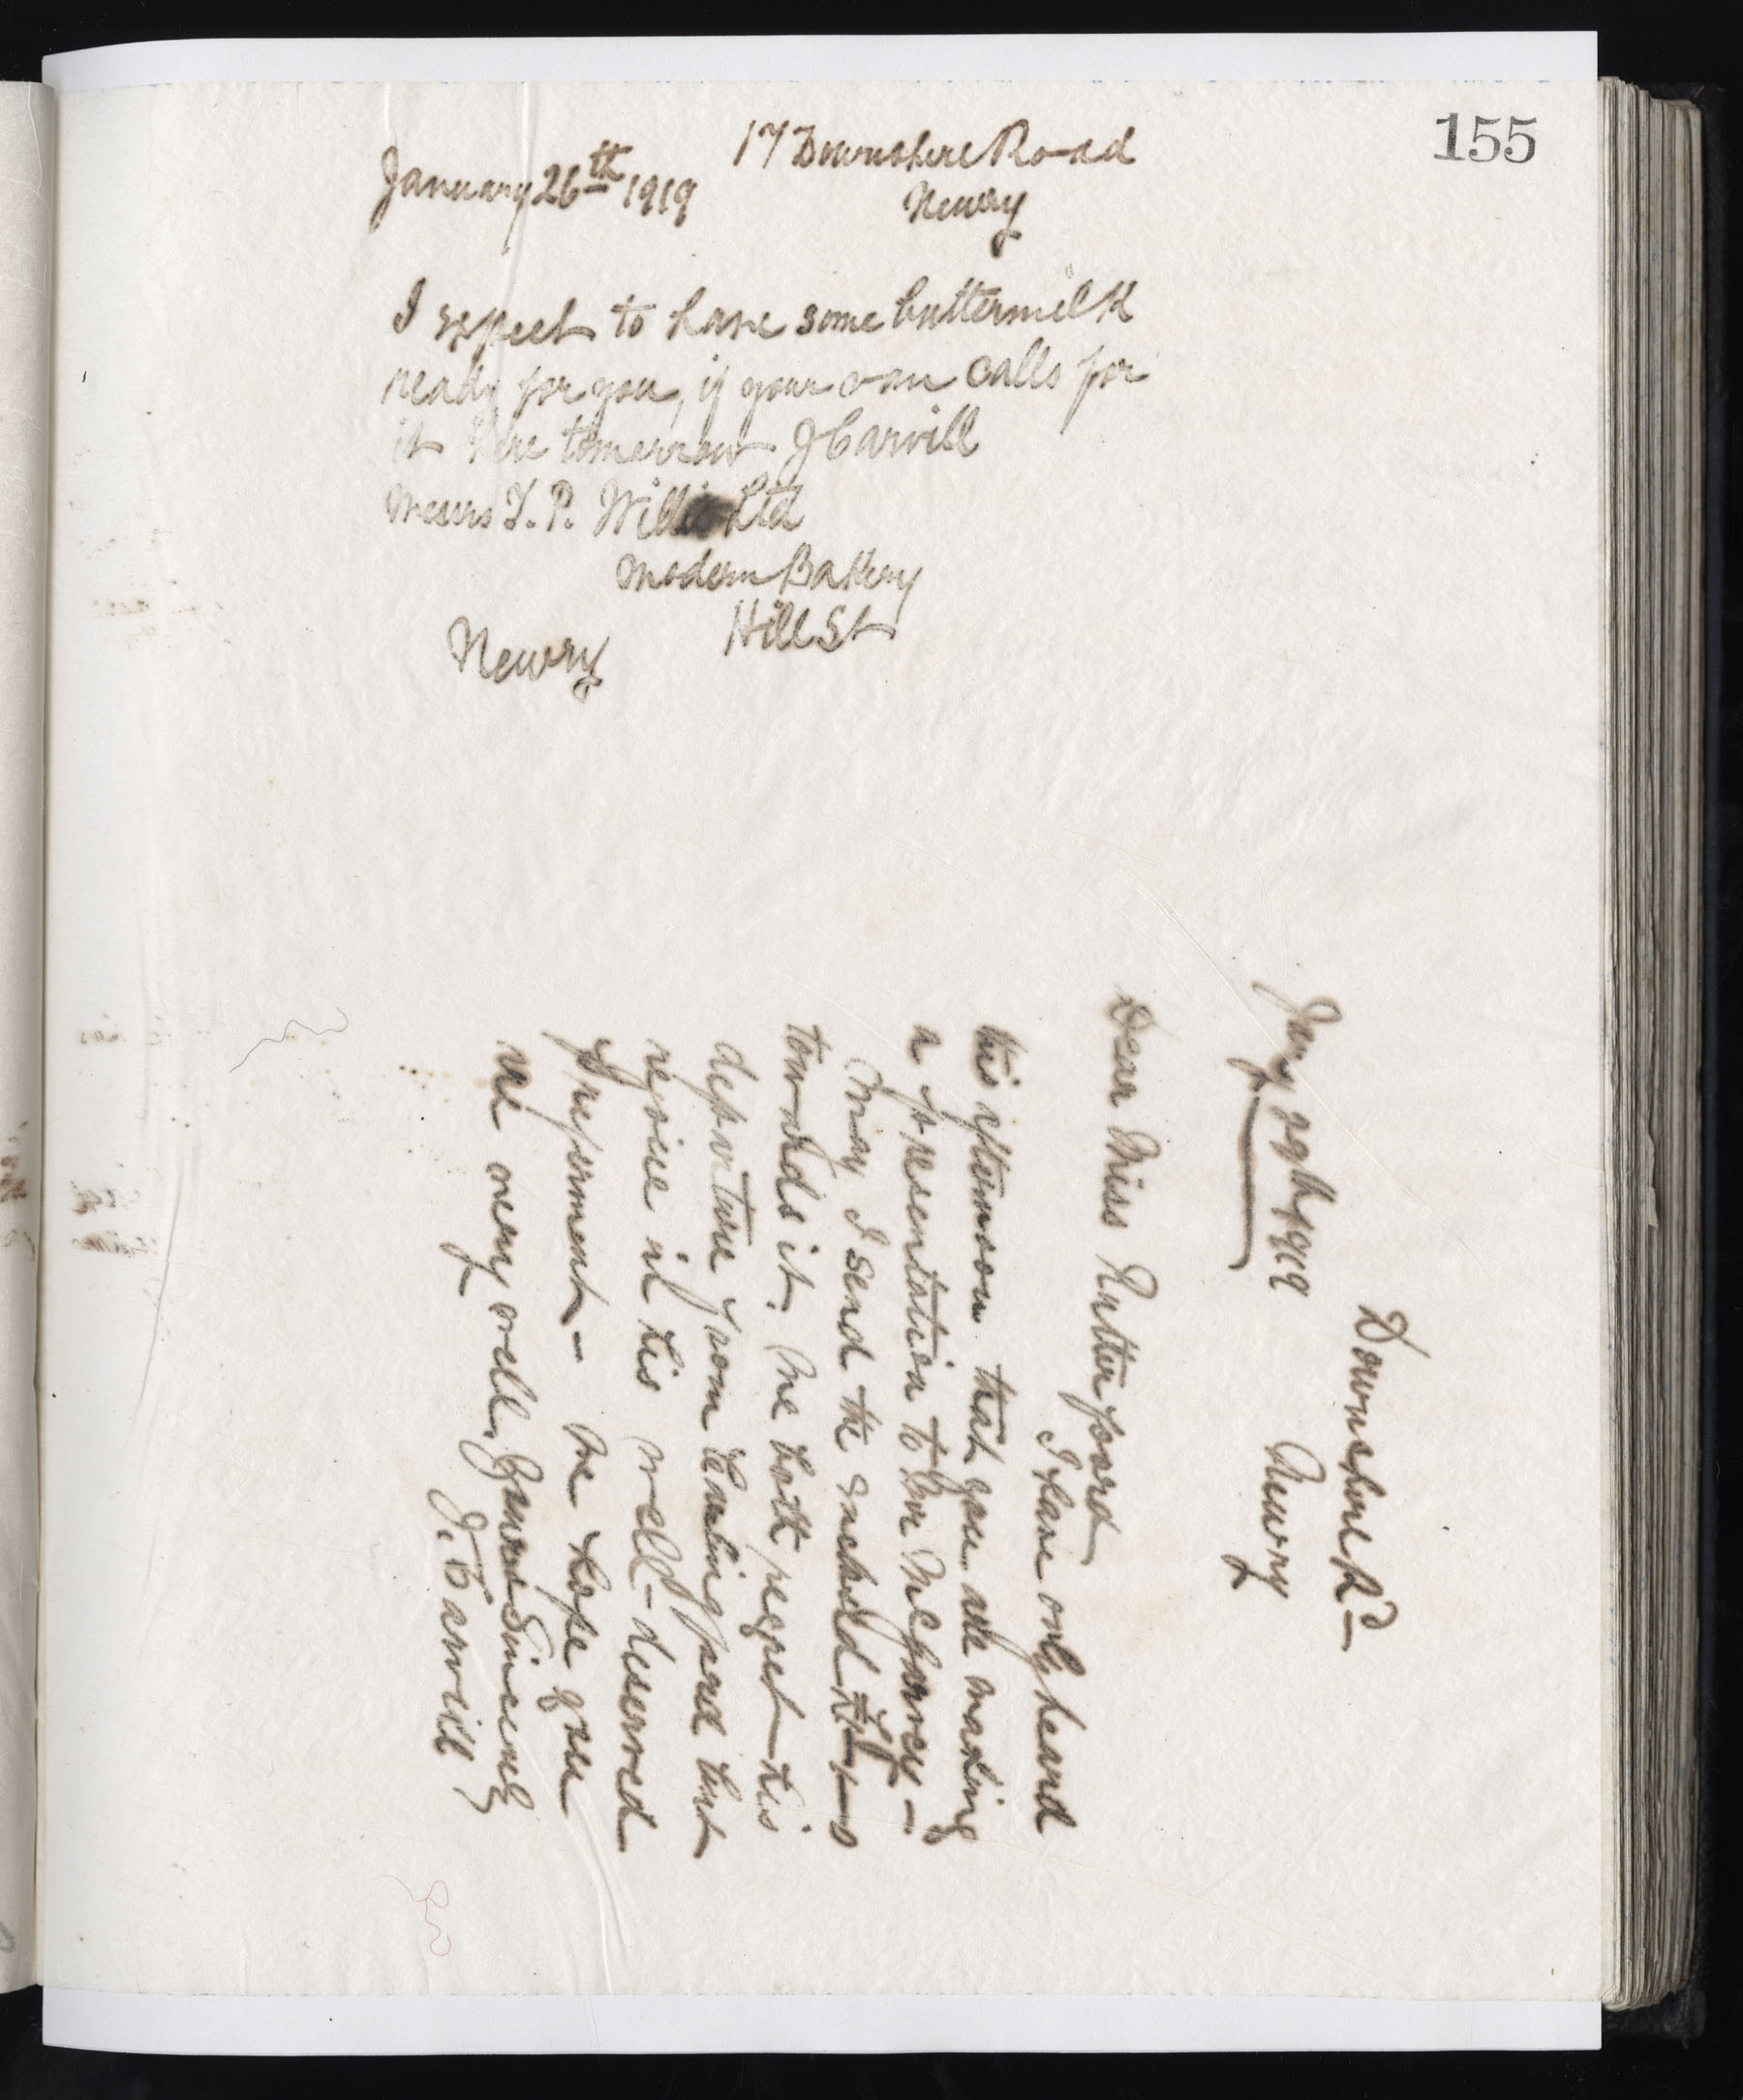 155
17 Downshire Road
January 26th 1919
Newry
I expect to have some buttermilk
ready for you, if your van calls for
it here tomorrow JCarvill
Messrs T. P. Willis Ltd
Modern Bakery
Hill St
Newry
Downshire Rd
Jany 29th 1919
Newry
Dear Miss Rutterfoord
I have only heard
this afternoon that you are making
a presentation to Mr McGarvey –
May I send the enclosed
towards it. We both regret his
departure from among us but
rejoice in his well-deserved
preferment – We hope you
are very well. Yours Sincerely
J. Carvill